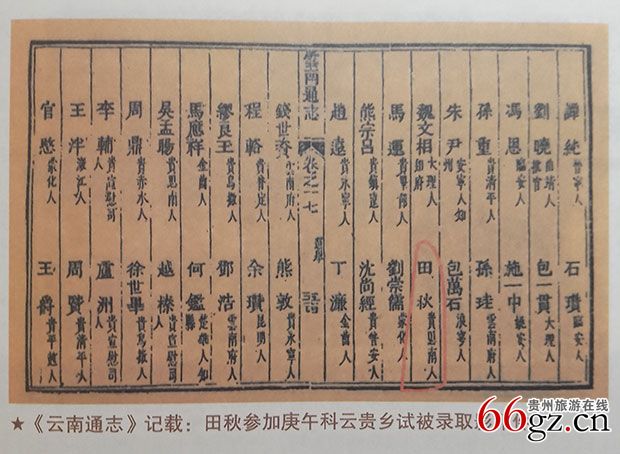 譚統 晉寧人 石瓚 臨安人
劉曉 曲靖人 推官 包一貫 大理人
馮恩 臨安人 施一中 臨安人
孫重 貴清平人 孫珪 雲南府人
朱尹 安寧人知州 包萬石 浪穹人
魏文相 大理人知府 田秋 貴思南人
馬運 貴畢節人 劉崇儒 蒙化人
熊宗呂 貴鎮遠人 沈尚經 貴普安人
趙遠 貴永寧人 丁濂 金齒人
雲南通志 卷之二七 選舉
錢世 雲南府人 熊敦 貴永寧人
程輅 貴普定人 余瓚 昆明人
繆良玉 貴烏撒人 鄧浩 雲南府人
馬應祥 金齒人 何鑑 楚雄人知縣
吳孟暘 貴思南人 越榛 貴宣慰司人
周鼎 貴赤水人 徐世畢 貴烏撒人
李輔 貴宣慰司人 盧洲 貴宣慰司人
王泮 瀓江人 周贇 人
官慜 蒙化人 王爵 貴平越人
★《云南通志》记载：田秋参加庚午科云贵乡试被录取
贵州旅游在线
66gz.cn